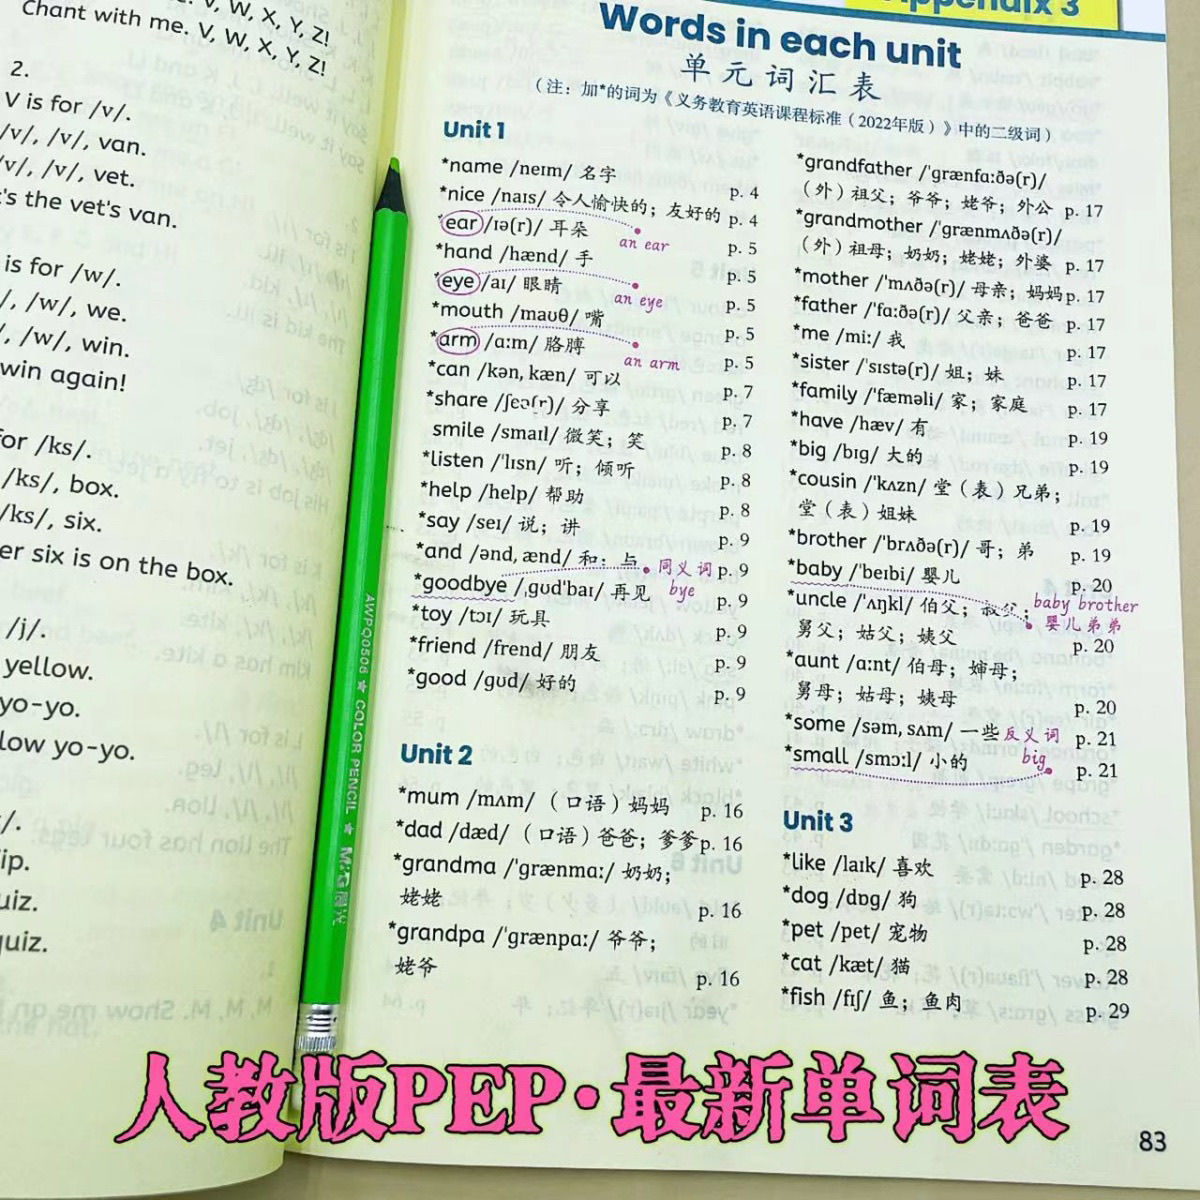 V, W, X, Y, Z!
Chant with me. V, W, X, Y, Z!
2.
V is for /v/.
/v/, /v/, van.
/v/, /v/, vet.
's the vet's van.
is for /w/.
/, /w/, we.
/, /w/, win.
win again!
for /ks/.
/ks/, box.
/ks/, six.
er six is on the box.
/j/.
yellow.
yo-yo.
low yo-yo.
/.
ip.
uiz.
quiz.
AWPQ0506 ★ COLOR PENCIL ★ M&G晨光
Appendix 3
Words in each unit
单元词汇表
（注：加*的词为《义务教育英语课程标准（2022年版）》中的二级词）
Unit 1
*name /neɪm/ 名字 p. 4
*nice /naɪs/ 令人愉快的；友好的 p. 4
*ear /ɪə(r)/ 耳朵 p. 5
an ear
*hand /hænd/ 手 p. 5
*eye /aɪ/ 眼睛 p. 5
an eye
*mouth /maʊθ/ 嘴 p. 5
*arm /ɑːm/ 胳膊 p. 5
an arm
*can /kən, kæn/ 可以 p. 7
*share /ʃeə(r)/ 分享 p. 7
smile /smaɪl/ 微笑；笑 p. 8
*listen /ˈlɪsn/ 听；倾听 p. 8
*help /help/ 帮助 p. 8
*say /seɪ/ 说；讲 p. 9
*and /ənd, ænd/ 和；与 p. 9
同义词
*goodbye /ˌɡʊdˈbaɪ/ 再见 p. 9
bye
*toy /tɔɪ/ 玩具 p. 9
*friend /frend/ 朋友 p. 9
*good /ɡʊd/ 好的 p. 9
Unit 2
*mum /mʌm/ （口语）妈妈 p. 16
*dad /dæd/ （口语）爸爸；爹爹 p. 16
*grandma /ˈɡrænmɑː/ 奶奶；
姥姥 p. 16
*grandpa /ˈɡrænpɑː/ 爷爷；
姥爷 p. 16
*grandfather /ˈɡrænfɑːðə(r)/
（外）祖父；爷爷；姥爷；外公 p. 17
*grandmother /ˈɡrænmʌðə(r)/
（外）祖母；奶奶；姥姥；外婆 p. 17
*mother /ˈmʌðə(r)/ 母亲；妈妈 p. 17
*father /ˈfɑːðə(r)/ 父亲；爸爸 p. 17
*me /miː/ 我 p. 17
*sister /ˈsɪstə(r)/ 姐；妹 p. 17
*family /ˈfæməli/ 家；家庭 p. 17
*have /hæv/ 有 p. 19
*big /bɪɡ/ 大的 p. 19
*cousin /ˈkʌzn/ 堂（表）兄弟；
堂（表）姐妹 p. 19
*brother /ˈbrʌðə(r)/ 哥；弟 p. 19
*baby /ˈbeɪbi/ 婴儿 p. 20
baby brother
婴儿弟弟
*uncle /ˈʌŋkl/ 伯父；叔父；
舅父；姑父；姨父 p. 20
*aunt /ɑːnt/ 伯母；婶母；
舅母；姑母；姨母 p. 20
*some /səm, sʌm/ 一些 p. 21
反义词
*small /smɔːl/ 小的 p. 21
big
Unit 3
*like /laɪk/ 喜欢 p. 28
*dog /dɒɡ/ 狗 p. 28
*pet /pet/ 宠物 p. 28
*cat /kæt/ 猫 p. 28
*fish /fɪʃ/ 鱼；鱼肉 p. 29
人教版PEP·最新单词表
83